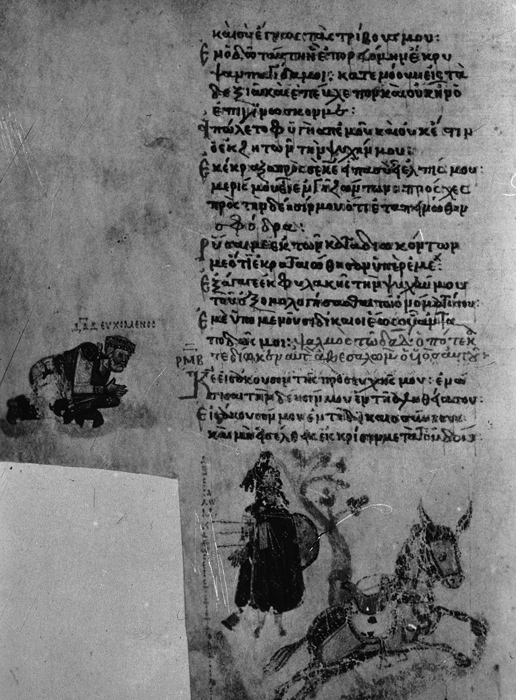 καὶ σὺ ἔγνως τὰς τρίβους μου:
Ἐν ὁδῶ ταύτη ἧ ἐπορευόμην ἔκρυ
ψαν παγίδα μοι: κατενόουν εἰς τὰ
δεξιὰ καὶ ἐπέβλεπον καὶ οὐκ ἦν ὁ
ἐπιγινώσκων με:
Ἀπώλετο φυγὴ ἀπ' ἐμοῦ καὶ οὐκ ἔστιν
ὁ ἐκζητῶν τὴν ψυχήν μου:
Ἐκέκραξα πρὸς σὲ κε εἶπα σὺ εἶ ἡ ἐλπίς μου:
μερίς μου εἶ ἐν γῆ ζώντων: πρόσχες
πρὸς τὴν δέησίν μου ὅτι ἐταπεινώθην
σφόδρα:
Ῥῦσαί με ἐκ τῶν καταδιωκόντων
με ὅτι ἐκραταιώθησαν ὑπὲρ ἐμέ:
Ἐξάγαγε ἐκ φυλακῆς τὴν ψυχήν μου
τοῦ ἐξομολογήσασθαι τῶ ὀνόματί σου:
Ἐμὲ ὑπομενοῦσι δίκαιοι ἕως οὗ ἀνταπο
δῶς μοι: ψαλμὸς τῶ δαδ: ὁπότε κ
ΡΜΒ ατεδίωκεν αὐτὸν ἀβεσαλὼμ ὁ υἱὸς αὐτοῦ:
Κε εἰσάκουσον τῆς προσευχῆς μου: ἐνώ
τισαι τὴν δέησίν μου ἐν τῆ ἀληθεία σου:
Εἰσάκουσόν μου ἐν τῆ δικαιοσύνη σου:
καὶ μὴ εἰσέλθης εἰς κρίσιν μετὰ τοῦ δούλου
ΔΑΔ ΕΥΧΟΜΕΝΟΣ